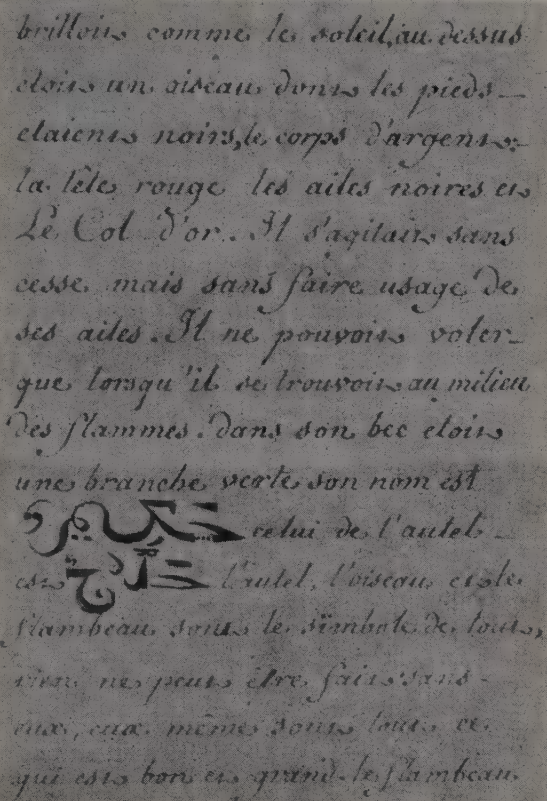 brilloit comme le soleil, au dessus
etoit un oiseau dont les pieds
etaient noirs, le corps d'argent,
la tête rouge les ailes noires et
Le Col d'or. Il s'agitait sans
cesse mais sans faire usage de
ses ailes. Il ne pouvoit voler
que lorsqu'il se trouvoit au milieu
des flammes. dans son bec etoit
une branche verte son nom est
celui de l'autel
est l'autel, l'oiseau et le
flambeau sont le simbole de tout,
rien ne peut être fait sans
eux, eux mêmes sont tout ce
qui est bon et grand. le flambeau